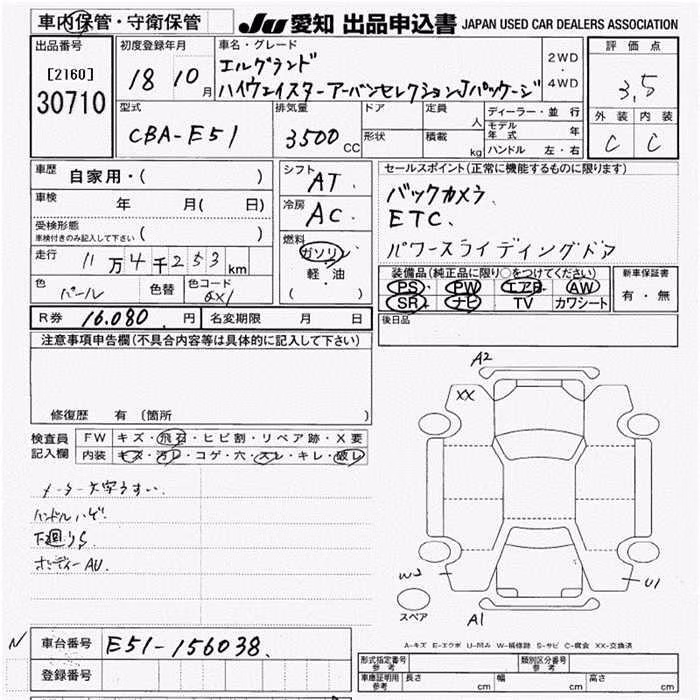 車内保管・守衛保管
JU 愛知 出品申込書 JAPAN USED CAR DEALERS ASSOCIATION
出品番号
[2160]
30710
初度登録年月
18 10月
車名・グレード
エルグランド
ハイウェイスターアーバンセレクションJパッケージ
2WD
・
4WD
評価点
3.5
外装 内装
C C
型式
CBA-E51
排気量
3500CC
ドア
形状
定員
人
積載
kg
ディーラー・並行
モデル年式 年
ハンドル 左・右
車歴
自家用・( )
車検
年 月( 日)
受検形態
車検付きのみ記入して下さい ( )
走行
11万4千253km
色
パール
色替
色コード
QX1
シフト
AT.
冷房
AC.
燃料
ガソリン
軽・油
( )
セールスポイント(正常に機能するものに限ります)
バックカメラ.
ETC.
パワースライディングドア
装備品(純正品に限り○をつけてください)
PS PW エアB AW
SR ナビ TV カワシート
新車保証書
有・無
後日品
R券 16.080 円
名変期限 月 日
注意事項申告欄(不具合内容等は具体的に記入して下さい)
修復歴 有 (箇所 )
検査員
記入欄
FW キズ・飛石・ヒビ割・リペア跡・X要
内装 キズ・汚レ・コゲ・穴・スレ・キレ・破レ
メーター文字うすい.
ハンドルハゲ.
下廻りS
ボディーAU.
A2
XX
W2
U1
A1
スペア
A-キズ E-エクボ U-凹み W-補修跡 S-サビ C-腐食 XX-交換済
N
車台番号 E51-156038.
登録番号
形式指定番号
参考
類別区分番号
参考
車庫証明用
参考
長さ cm
幅 cm
高さ cm